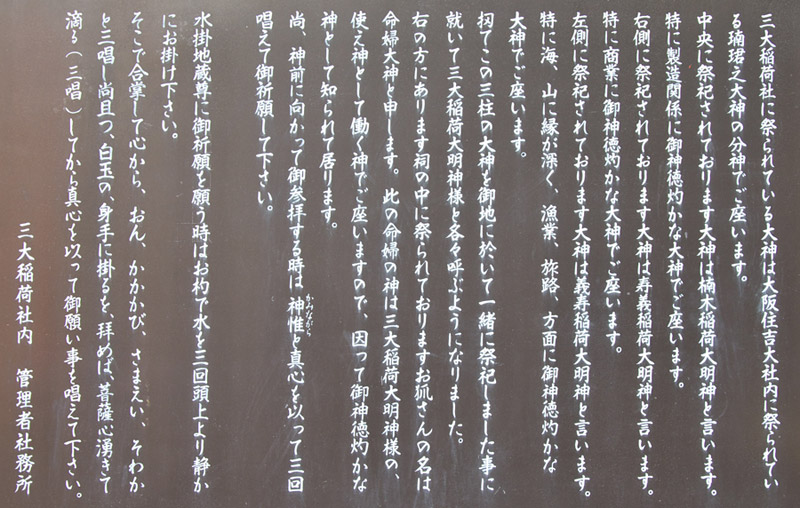 三大稲荷社に祭られている大神は大阪住吉大社内に祭られてい
る瑀珺之大神の分神でご座います。
中央に祭祀されております大神は楠木稲荷大明神と言います。
特に製造関係に御神徳灼かな大神でご座います。
右側に祭祀されております大神は寿義稲荷大明神と言います。
特に商業に御神徳灼かな大神でご座います。
左側に祭祀されております大神は義寿稲荷大明神と言います。
特に海、山に縁が深く、漁業、旅路、方面に御神徳灼かな
大神でご座います。
扨てこの三柱の大神を御地に於いて一緒に祭祀しました事に
就いて三大稲荷大明神様と各々呼ぶようになりました。
右の方にあります祠の中に祭られておりますお狐さんの名は
命婦大神と申します。此の命婦の神は三大稲荷大明神様の、
使え神として働く神でご座いますので、因って御神徳灼かな
神として知られて居ります。
尚、神前に向かって御参拝する時は神惟と真心を以って三回
かみながら
唱えて御祈願して下さい。
水掛地蔵尊に御祈願を願う時はお杓で水を三回頭上より静か
にお掛け下さい。
そこで合掌して心から、おん、かかかび、さまえい、そわか
と三唱し尚且つ、白玉の、身手に掛るを、拝めば、菩薩心湧きて
滴る（三唱）してから真心を以って御願い事を唱えて下さい。
三大稲荷社内　管理者社務所